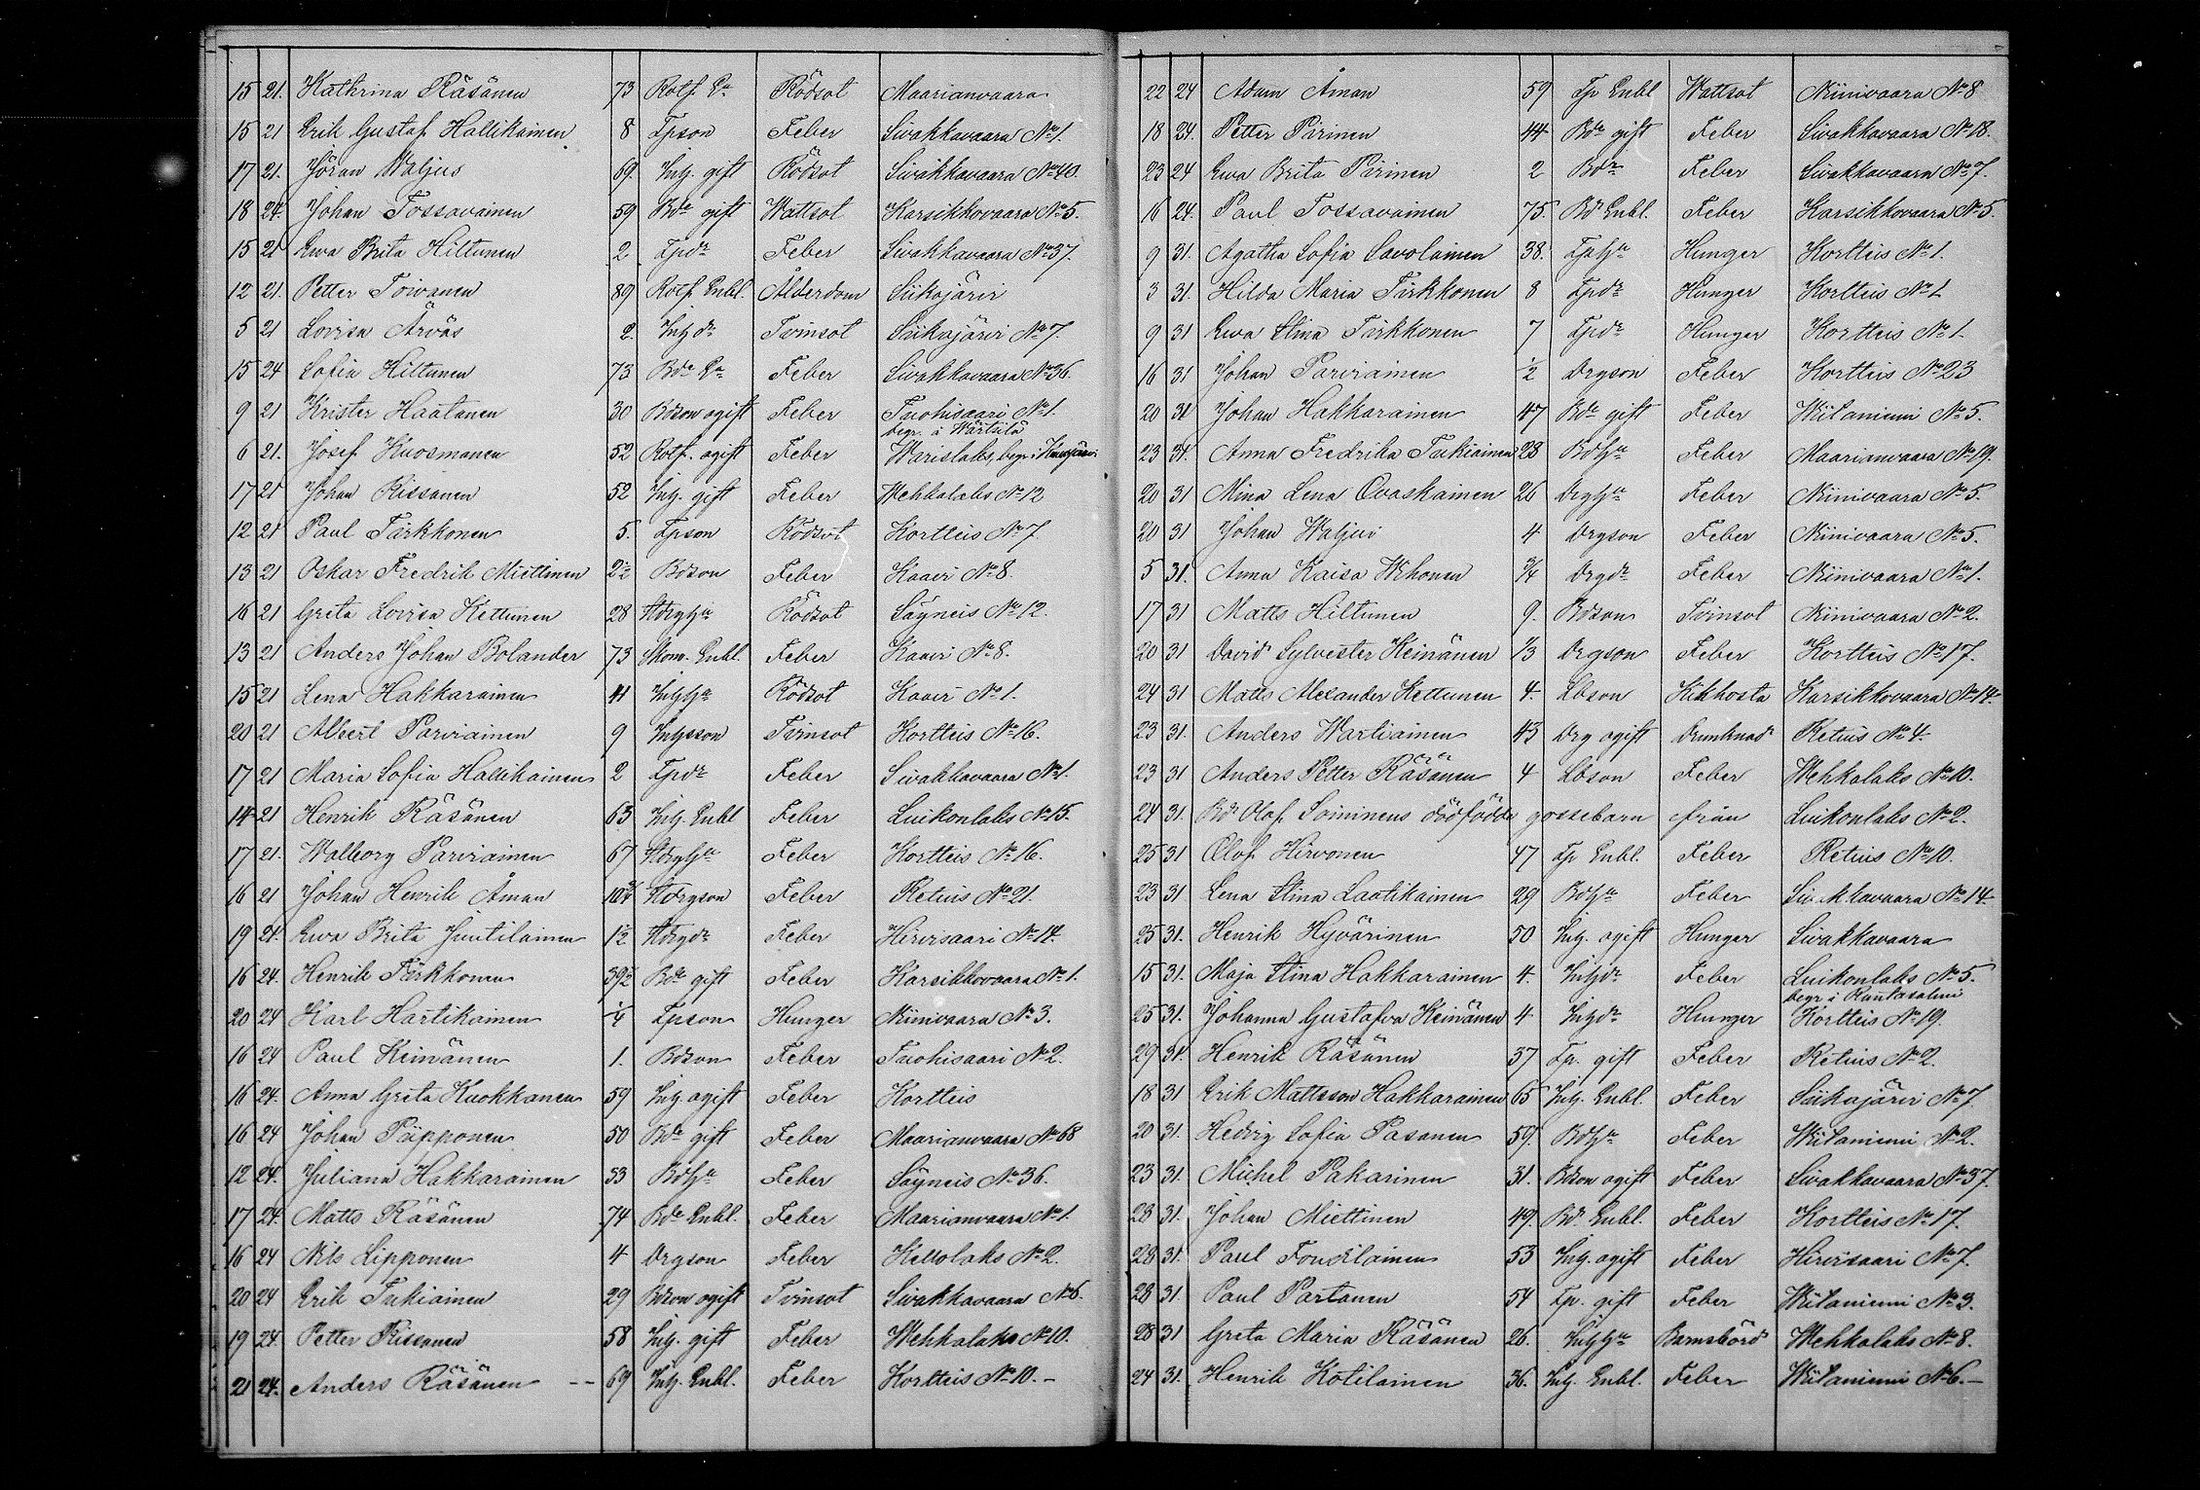 15 21. Kathrina Räsänen 73 Rotf. Ea Rödsot Maarianvaara
15 21 Erik Gustaf Hallikainen 8 Tpson Feber Sivakkavaara No 1.
17 21. Jöran Waljus 69. Inh. gift Rödsot Sivakkavaara No 40.
18 24. Johan Tossavainen 59 Bde gift Wattsot Karsikkovaara No 5.
15 21 Ewa Brita Hiltunen 2 Tpdr Feber Sivakkavaara No 37.
12 21. Petter Toivanen 89 Rotf. Enkl. Ålderdom Siikajärvi
5 21 Lovisa Ärväs 2. Inhdr Tvinsot Siikajärvi No 7.
15 24 Sofia Hiltunen 73 Bde Ea Feber Sivakkavaara No 36.
9 21 Krister Haatanen 30 Bdson ogift Feber Tuohisaari No 1.
begr. i Wärtsilä
6 21. Josef Kuosmanen 52 Rotf. ogift Feber Warislaks, begr. i
17 21 Johan Rissanen 52 Inh. gift Feber Wehkalaks No 12
12 21 Paul Tarkkonen 5. Tpson Rödsot Kortteis No 7.
13 21 Oskar Fredrik Miettinen 2½ Bdson Feber Kaavi No 8.
16 21 Greta Lovisa Kettunen 28 Rödsot Säyneis No 12.
13 21 Anders Johan Bolander 73 Skom. Enkl. Feber Kaavi No 8.
15 21 Lena Hakkarainen 41 InhHu Rödsot Kaavi No 1.
20 21 Albert Parviainen 9 Inhsson Tvinsot Kortteis No 16.
17 21 Maria Sofia Hallikainen 2 Tpdr Feber Sivakkavaara No 1.
14 21 Henrik Räsänen 63 Inh. Enkl Feber Luikonlaks No 15.
17 21. Walborg Parviainen 67 Feber Kortteis No 16.
16 21 Johan Henrik Åman Feber Retuis No 21.
19 21. Ewa Brita Juutilainen 1½ Feber Hirvisaari No 14.
16 24. Henrik Tarkkonen 39½ Bde gift Feber Karsikkovaara No 1.
20 24 Karl Hartikainen ¼ Tpson Hunger Niinivaara No 3.
16 24 Paul Keinänen 1. Bdson Feber Tuohisaari No 2.
16 24. Anna Greta Kuokkanen 59 Inh. ogift Feber Kortteis
16 24 Johan Pipponen 50 Bde gift Feber Maarianvaara No 68
12 24. Juliana Hakkarainen 33 BdHu Feber Säyneis No 36.
17 24. Matts Räsänen 74 Bde Enkl. Feber Maarianvaara No 1.
16 24 Nils Lipponen 4 Drgson Feber Kellolaks No 2.
20 24 Erik Tukiainen 29 Bdson ogift Tvinsot Sivakkavaara No 6.
19 24. Petter Rissanen 58 Inh. gift Feber Wehkalaks No 10.
21 24. Anders Räsänen -- 69 Inh. Enkl. Feber Kortteis No 10. -
22 24 Adam Åman 59 Tp Enkl Wattsot Niinivaara No 8
18 24. Petter Pirinen 44 Bde gift Feber Sivakkavaara No 18.
23 24 Ewa Brita Pirinen 2 Bdr Feber Sivakkavaara No 7.
16 24. Paul Tossavainen 75. Bd Enkl. Feber Karsikkovaara No 5.
9 31. Agatha Sofia Savolainen 38. TpHu Hunger Kortteis No 1.
3 31. Hilda Maria Tarkkonen 8 Tpdr Hunger Kortteis No 1
9 31 Ewa Stina Tarkkonen 7 Tpdr Hunger Kortteis No 1.
16 31 Johan Parviainen ½ Drgson Feber Kortteis No 23
20 31 Johan Hakkarainen 47 Bde gift Feber Wiitaniemi No 5.
23 31. Anna Fredrika Tukiainen 28 BdHu Feber Maarianvaara No 19.
20 31 Mina Lena Ovaskainen 26 DrgHu Feber Niinivaara No 5.
20 31 Johan Waljus 4 Drgson Feber Niinivaara No 5.
5 31. Anna Kaisa Wihonen ¾ Drgdr Feber Niinivaara No 1.
17 31 Matts Hiltunen 9. Bdson Tvinsot Niinivaara No 2.
20 31 David Sylvester Keinänen 1/3 Drgson Feber Kortteis No 17.
24 31 Matts Alexander Kettunen 4. Lbson Kikhosta Karsikkovaara No 14.
23 31. Anders Wartiainen 43 Drg ogift Drunknad Retuis No 4.
23 31 Anders Petter Räsänen 4 Lbson Feber Wehkalaks No 10.
24 31. Bd Olof Soininens dödfödda gossebarn från Luikonlaks No 2.
25 31 Olof Hirvonen 47 Tp Enkl. Feber Retuis No 10.
23 31 Lena Stina Laatikainen 29 BdHu Feber Sivakkavaara No 14.
25 31. Henrik Hyvärinen 50 Inh. ogift Hunger Sivakkavaara
15 31. Maja Stina Hakkarainen 4. Inhdr Feber Luikonlaks No 5.
begr. i Rautasalmi
25 31. Johanna Gustafva Keinänen 4 Inhdr Hunger Kortteis No 19.
29 31. Henrik Räsänen 37 Tp. gift Feber Retuis No 2.
18 31 Erik Mattsson Hakkarainen 65 Inh. Enkl. Feber Siikajärvi No 7
20 31. Hedvig Sofia Pasanen 59. BdHu Feber Wiitaniemi No 2.
23 31. Michel Pakarinen 31. Bdson ogift Feber Sivakkavaara No 37.
28 31. Johan Miettinen 49. Bd. Enkl. Feber Kortteis No 17.
28 31. Paul Toudilainen 53 Inh. ogift Feber Hirvisaari No 7.
28 31. Paul Partanen 54 Tp. gift Feber Wiitaniemi No 3.
28 31 Greta Maria Räsänen 26. InhHu Barnsbörd Wehkalaks No 8.
24 31. Henrik Kotilainen 36. Inh. Enkl. Feber Wiitaniemi No 6. -